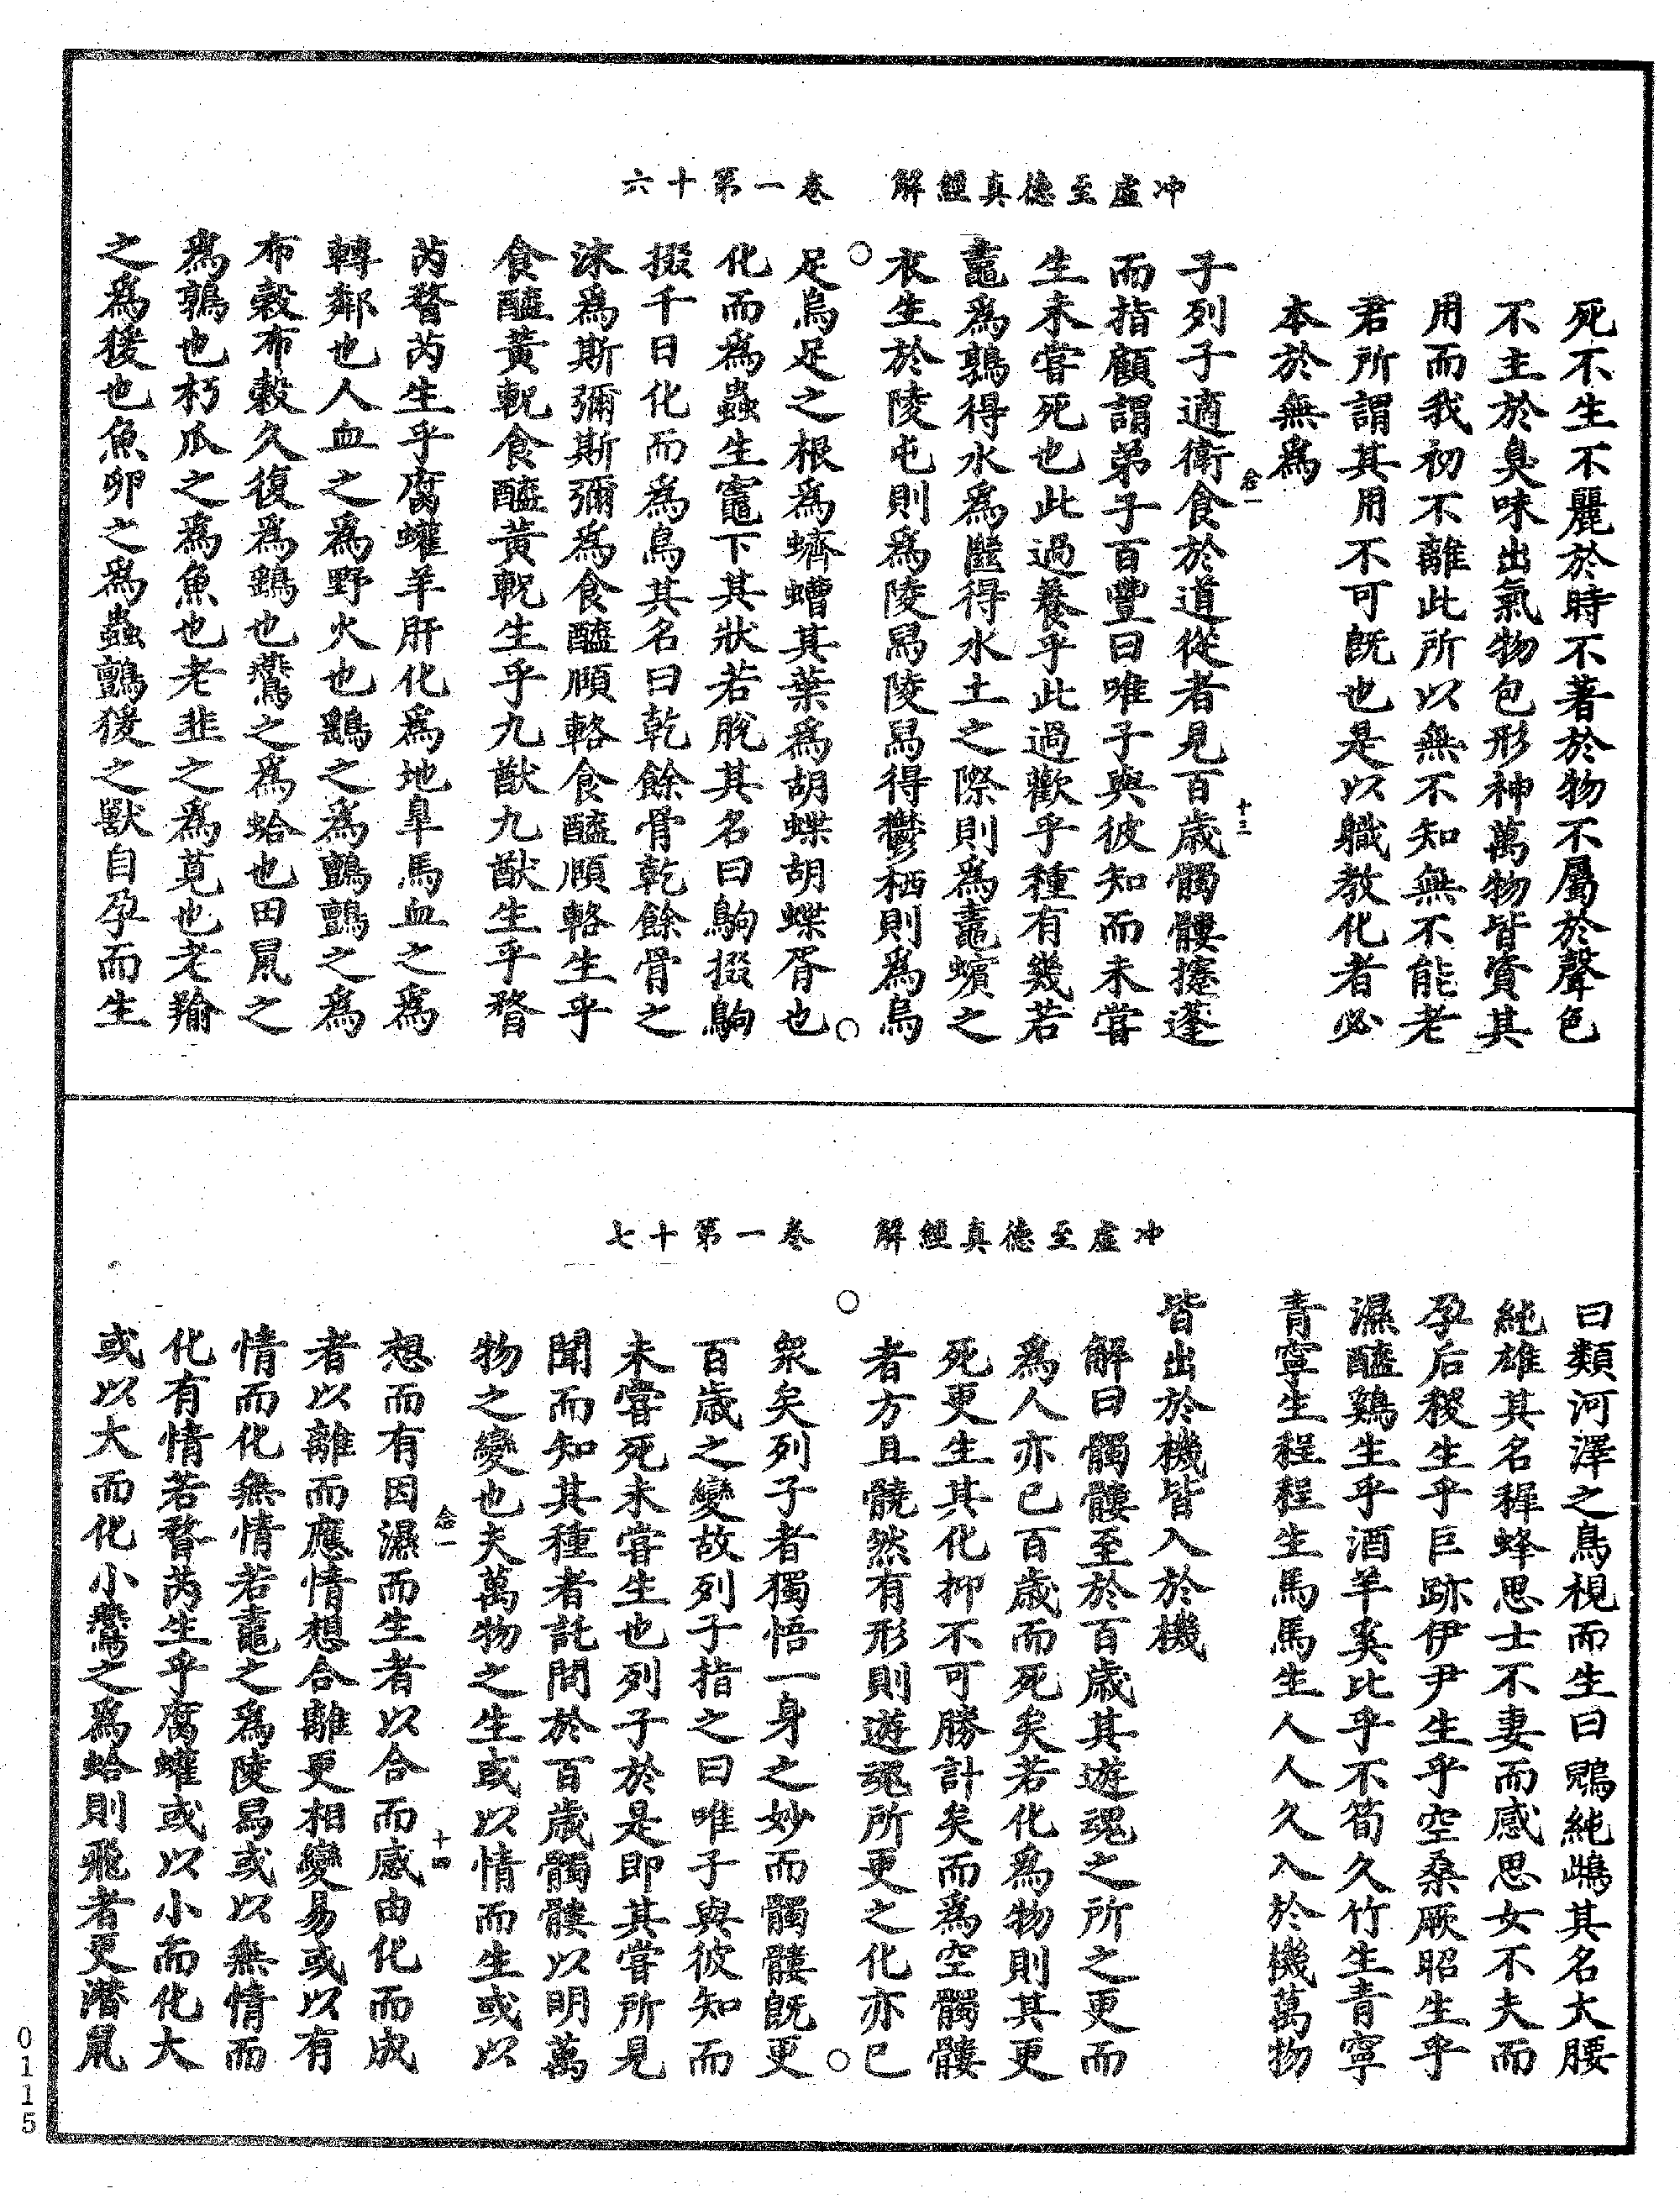 冲虛至德真經解　卷一第十六
死不生不麗於時不著於物不屬於聲色
不主於臭味出氣物包形神萬物皆資其
用而我初不離此所以無不知無不能老
君所謂其用不可既也是以職教化者必
本於無爲
子列子適衛食於道從者見百歲髑髏攓蓬
而指顧謂弟子百豐曰唯子與彼知而未嘗
生未嘗死也此過養乎此過歡乎種有幾若
鼃爲鶉得水爲㡭得水土之際則爲鼃蠙之
衣生於陵屯則爲陵舄陵舄得鬱栖則爲烏
足烏足之根爲蠐螬其葉爲胡蝶胡蝶胥也
化而爲蟲生竈下其狀若脫其名曰鴝掇鴝
掇千日化而爲鳥其名曰乾餘骨乾餘骨之
沬爲斯彌斯彌爲食醯頤輅食醯頤輅生乎
食醯黃軦食醯黃軦生乎九猷九猷生乎瞀
芮瞀芮生乎腐蠸羊肝化爲地臯馬血之爲
轉鄰也人血之爲野火也鷂之爲鸇鸇之爲
布穀布穀久復爲鷂也鷰之爲蛤也田鼠之
爲鶉也朽瓜之爲魚也老韭之爲莧也老羭
之爲猨也魚卵之爲蟲亶爰之獸自孕而生
冲虛至德真經解　卷一第十七
曰類河澤之鳥視而生曰鶂純雌其名大䐅
純雄其名稺蜂思士不妻而感思女不夫而
孕后稷生乎巨跡伊尹生乎空桑厥昭生乎
濕醯鷄生乎酒羊奚比乎不筍久竹生青寧
青寧生程程生馬馬生人人久入於機萬物
皆出於機皆入於機
解曰髑髏至於百歲其遊魂之所之更而
爲人亦已百歲而死矣若化爲物則其更
死更生其化抑不可勝計矣而爲空髑髏
者方且髐然有形則遊魂所更之化亦已
衆矣列子者獨悟一身之妙而髑髏既更
百歲之變故列子指之曰唯子與彼知而
未嘗死未嘗生也列子於是即其嘗所見
聞而知其種者託問於百歲髑髏以明萬
物之變也夫萬物之生或以情而生或以
想而有因濕而生者以合而感由化而成
者以離而應情想合離更相變易或以有
情而化無情若鼃之爲陵舄或以無情而
化有情若瞀芮生乎腐蠸或以小而化大
或以大而化小鷰之爲蛤則飛者更潛鼠
0115